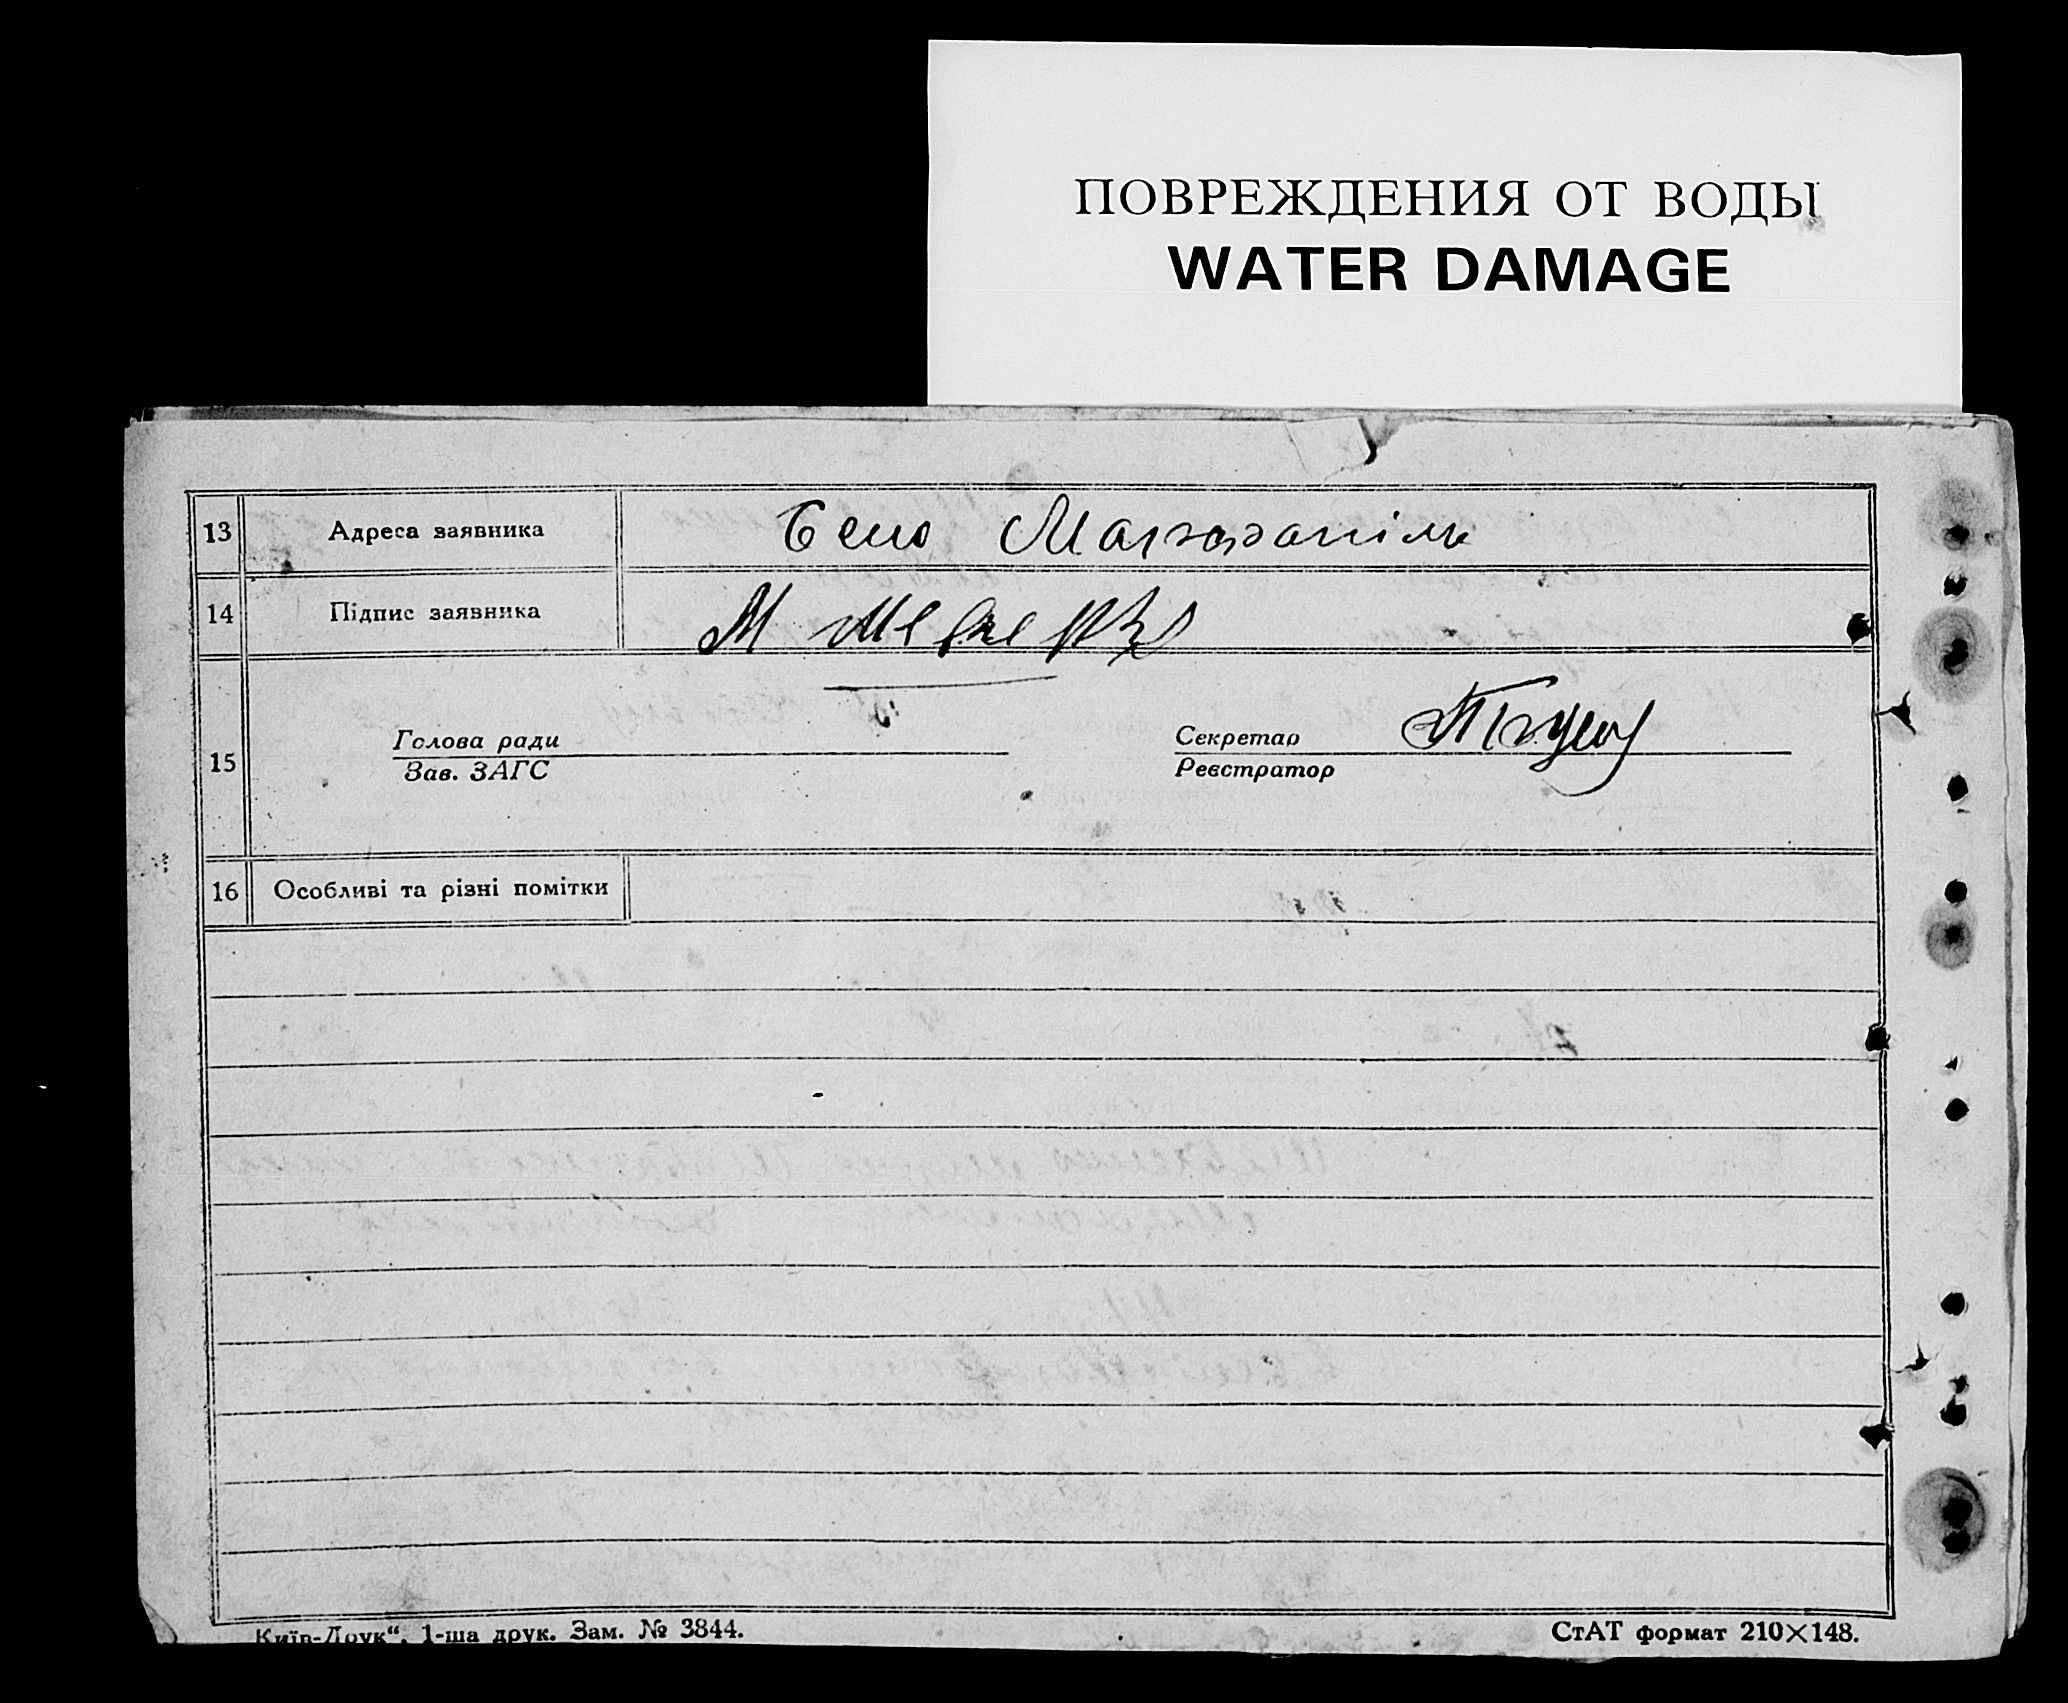 ПОВРЕЖДЕНИЯ ОТ ВОДЫ
WATER DAMAGE
13 Адреса заявника
14 Підпис заявника
15 Голова ради Секретар
Зав. ЗАГС Реєстратор
16 Особливі та різні помітки
Київ-Друк“. 1-ша друк. Зам. № 3844. СтАТ формат 210×148.